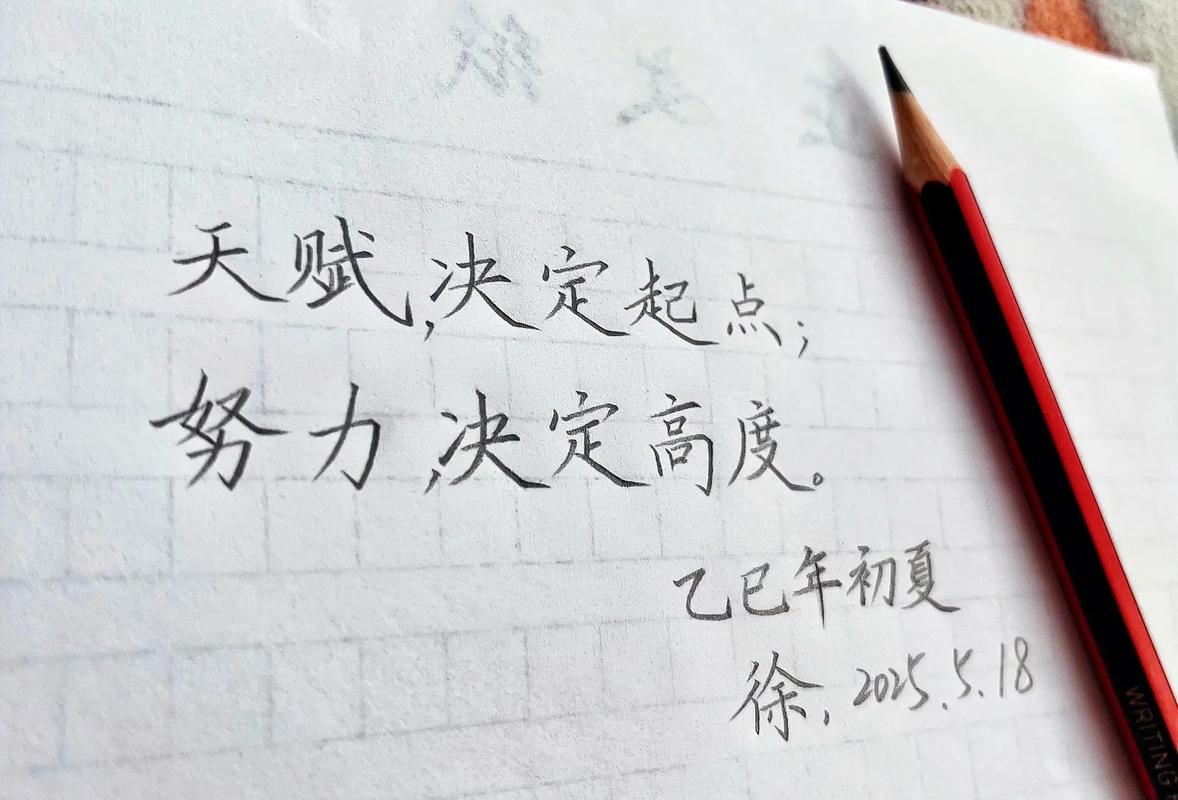 天赋,决定起点;
努力,决定高度。
乙巳年初夏
徐,2025.5.18
WRITING